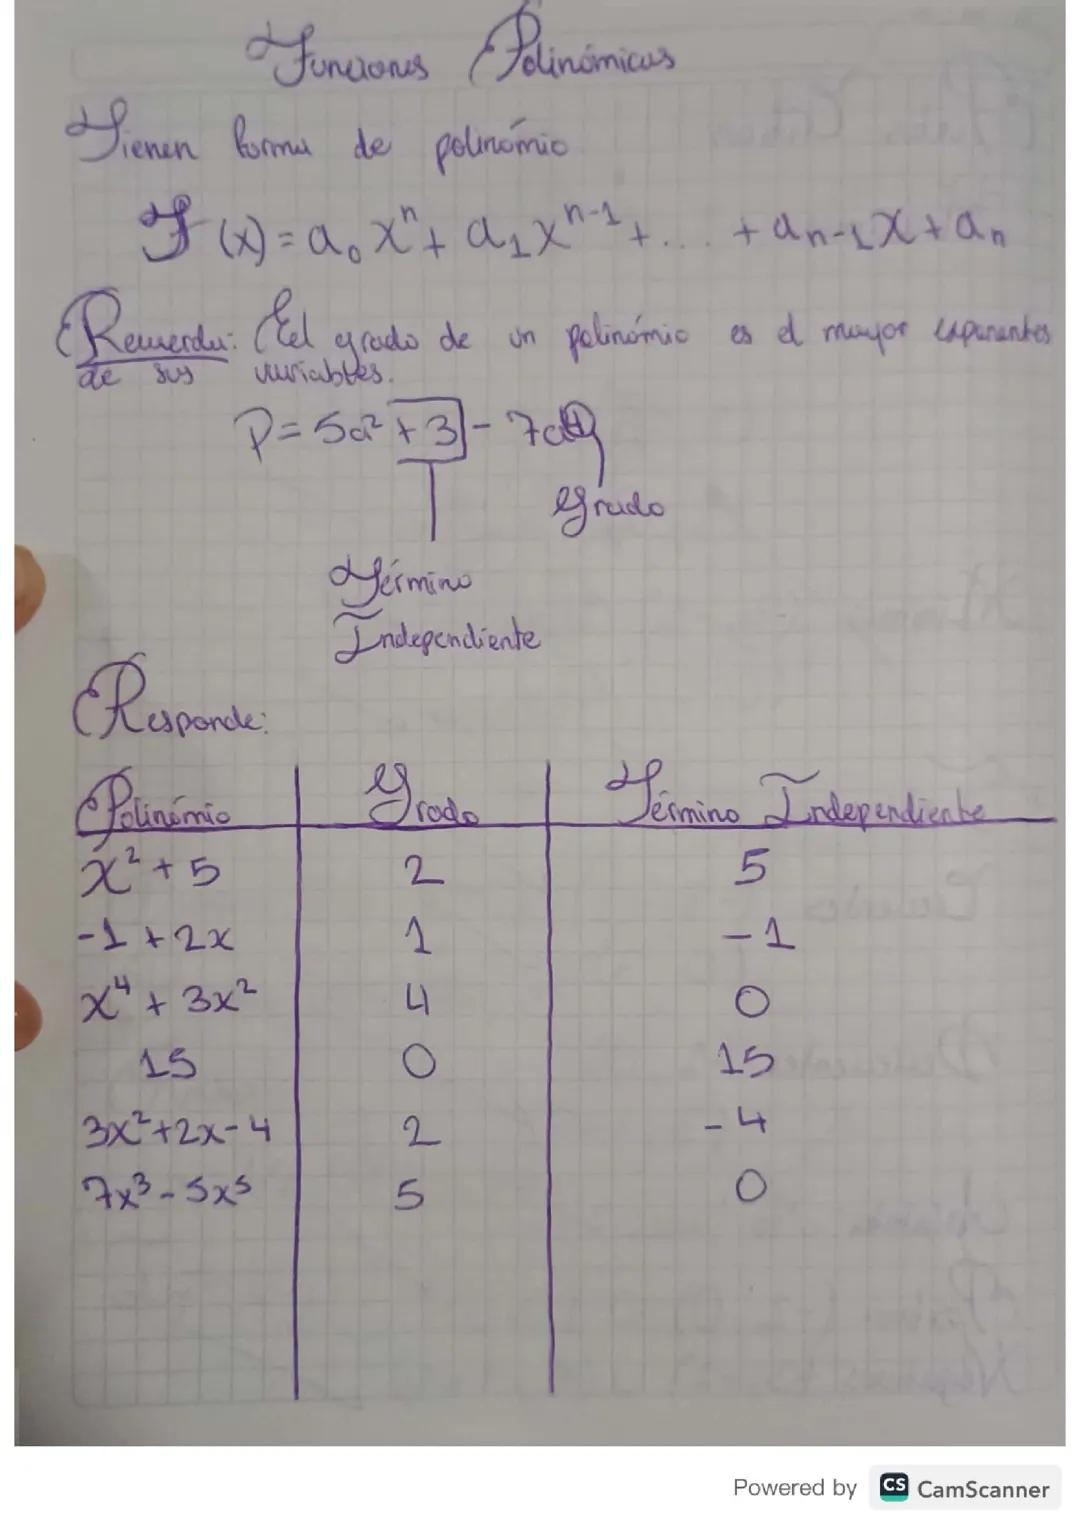 Funciones Polinómicas
Tienen forma de polinómio
F(x) = a₀ xⁿ + a₁ xⁿ⁻¹ + ... + aₙ₋₁ x + aₙ
Recuerda: El grado de un polinómio es el mayor exponentes
de sus variables.
P = 5a² + 3 - 7a⁴
Grado
Término
Independiente
Responde:
Polinómio Grado Término Independiente
x² + 5 2 5
-1 + 2x 1 -1
x⁴ + 3x² 4 0
15 0 15
3x² + 2x - 4 2 -4
7x³ - 5x⁵ 5 0
Powered by CS CamScanner